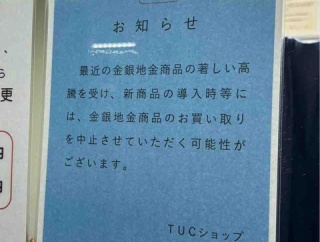 お知らせ
最近の金銀地金商品の著しい高
騰を受け、新商品の導入時等に
は、金銀地金商品のお買い取り
を中止させていただく可能性が
ございます。
TUCショップ
、
ら
更
円
円